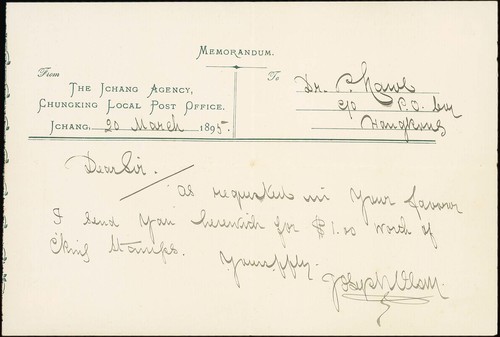 MEMORANDUM.
From
THE ICHANG AGENCY,
CHUNGKING LOCAL POST OFFICE.
ICHANG, 20 March 1895.
To
Dr. P.
c/o P.O. Box
Hongkong
Dear Sir.
As requested in your favour
I send you herewith for $1.20 worth of
C'King Stamps.
Yours ffly.
Joseph